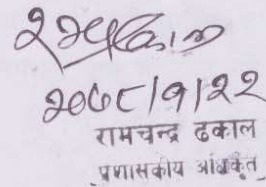 २०७८/९/२२
रामचन्द्र ढकाल
प्रशासकीय अधिकृत